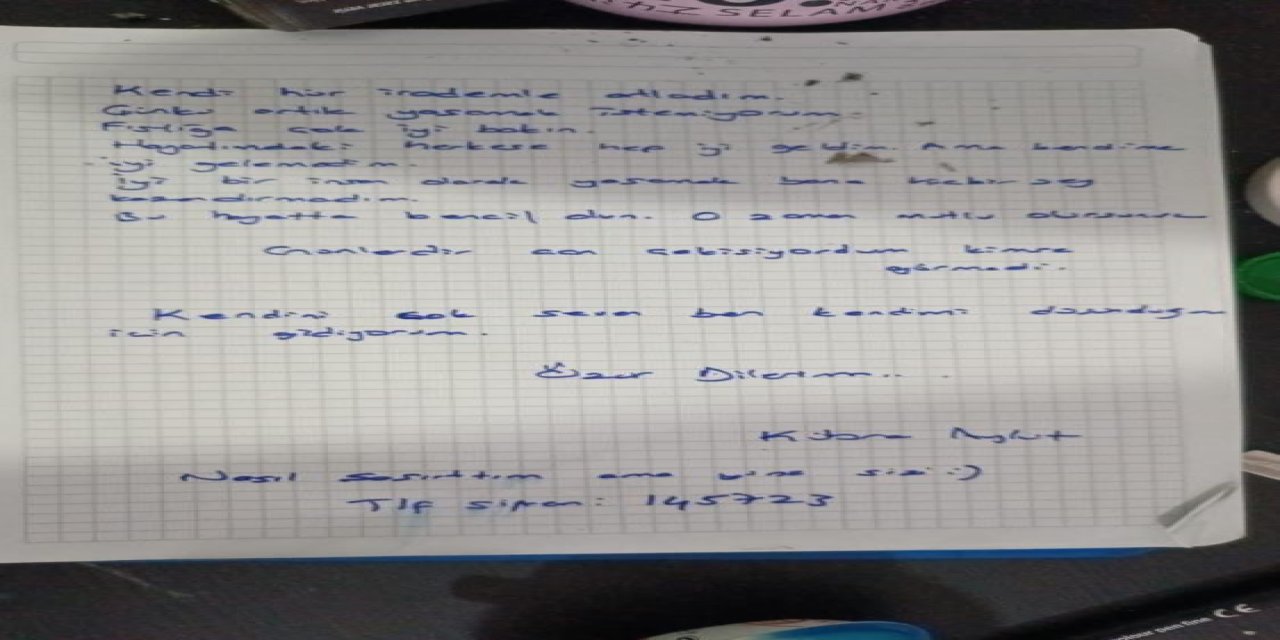 SELAN
Kendi hür irademle atladım.
Çünkü artık yaşamak istemiyorum.
Fıstığa çok iyi bakın.
Hayatımdaki herkese hep iyi geldim. Ama kendime
iyi gelemedim.
İyi bir insan olarak yaşamak bana hiçbir şey
kazandırmadı.
Bu hayatta bencil olun. O zaman mutlu olursunuz
Günlerdir can çekişiyordum kimse
görmedi.
Kendimi çok seven ben kendimi düşündüğüm
için gidiyorum.
Özür Dilerim...
Kübra Aykut
Nasıl şaşırttım ama yine sizi :)
Tlf şifrem: 145723
CE